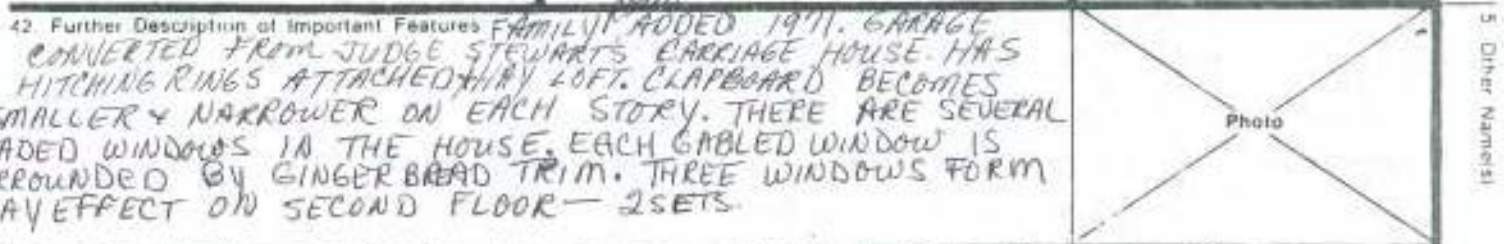 42. Further Description of Important Features FAMILY ADDED 1971. GARAGE
CONVERTED FROM JUDGE STEWARTS CARRIAGE HOUSE. HAS
HITCHING RINGS ATTACHED & HAY LOFT. CLAPBOARD BECOMES
SMALLER & NARROWER ON EACH STORY. THERE ARE SEVERAL
ADED WINDOWS IN THE HOUSE. EACH GABLED WINDOW IS
RROUNDED BY GINGERBREAD TRIM. THREE WINDOWS FORM
AY EFFECT ON SECOND FLOOR — 2 SETS.
Photo
5 Other Name(s)